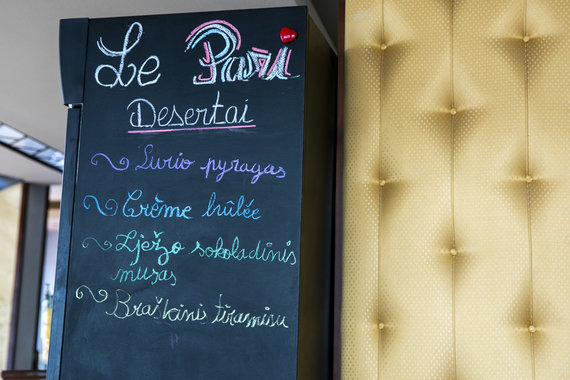 Le Pari
Desertai
Surio pyragas
Crème bûlée
Lježo sokoladinis
musas
Braškinis tiramisu